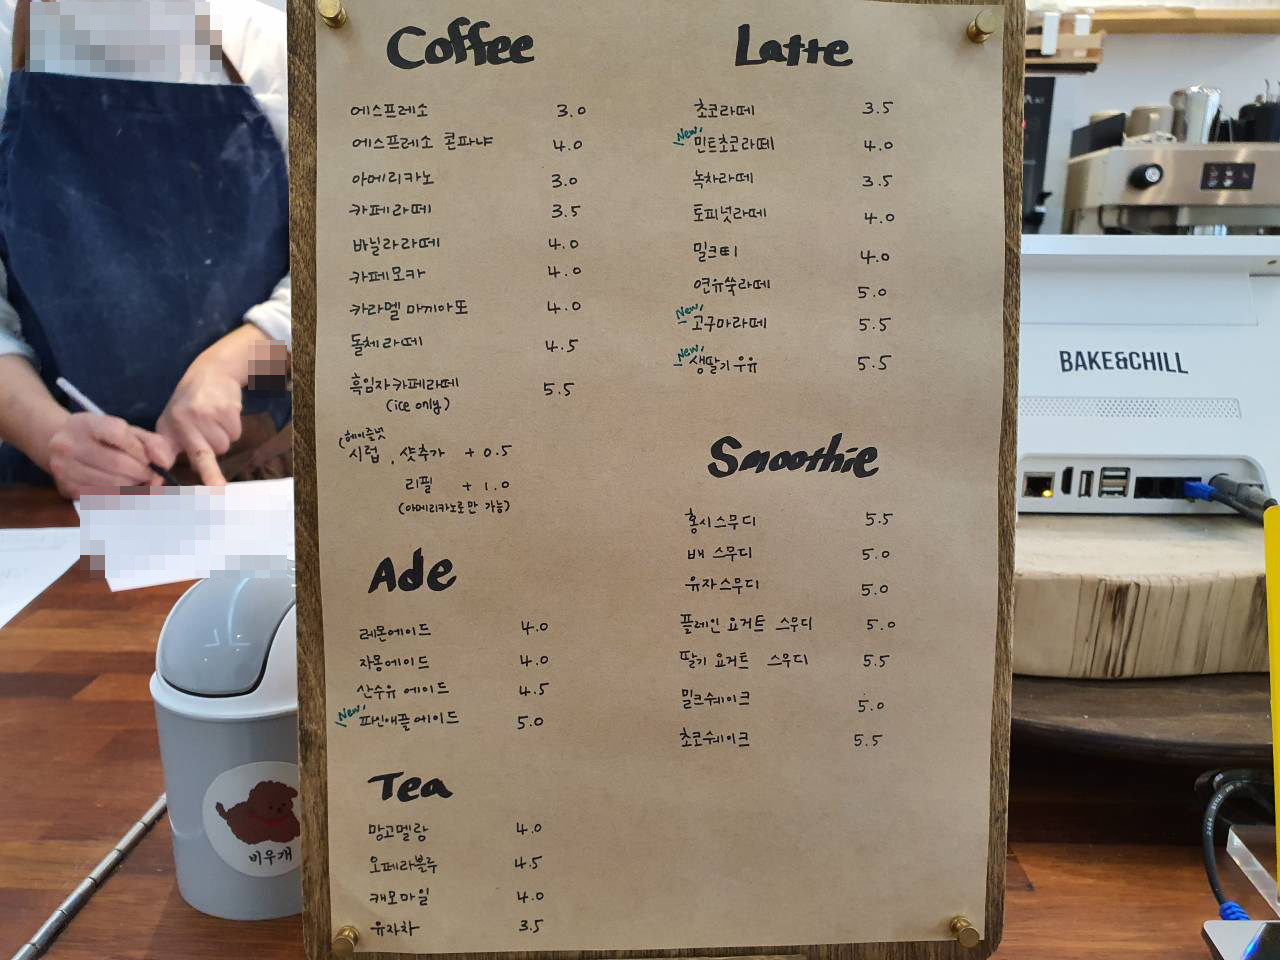 Coffee
에스프레소 3.0
에스프레소 콘파냐 4.0
아메리카노 3.0
카페라떼 3.5
바닐라라떼 4.0
카페모카 4.0
카라멜 마끼아또 4.0
돌체라떼 4.5
흑임자카페라떼 5.5
(ice only)
(헤이즐넛
시럽, 샷추가 +0.5
리필 +1.0
(아메리카노로만 가능)
Ade
레몬에이드 4.0
자몽에이드 4.0
산수유 에이드 4.5
New! 파인애플에이드 5.0
Tea
망고멜랑 4.0
오페라블루 4.5
캐모마일 4.0
유자차 3.5
Latte
초코라떼 3.5
New! 민트초코라떼 4.0
녹차라떼 3.5
토피넛라떼 4.0
밀크티 4.0
연유쑥라떼 5.0
New! 고구마라떼 5.5
New! 생딸기우유 5.5
Smoothie
홍시스무디 5.5
배 스무디 5.0
유자스무디 5.0
플레인 요거트 스무디 5.0
딸기 요거트 스무디 5.5
밀크쉐이크 5.0
초코쉐이크 5.5
BAKE&CHILL
비우개